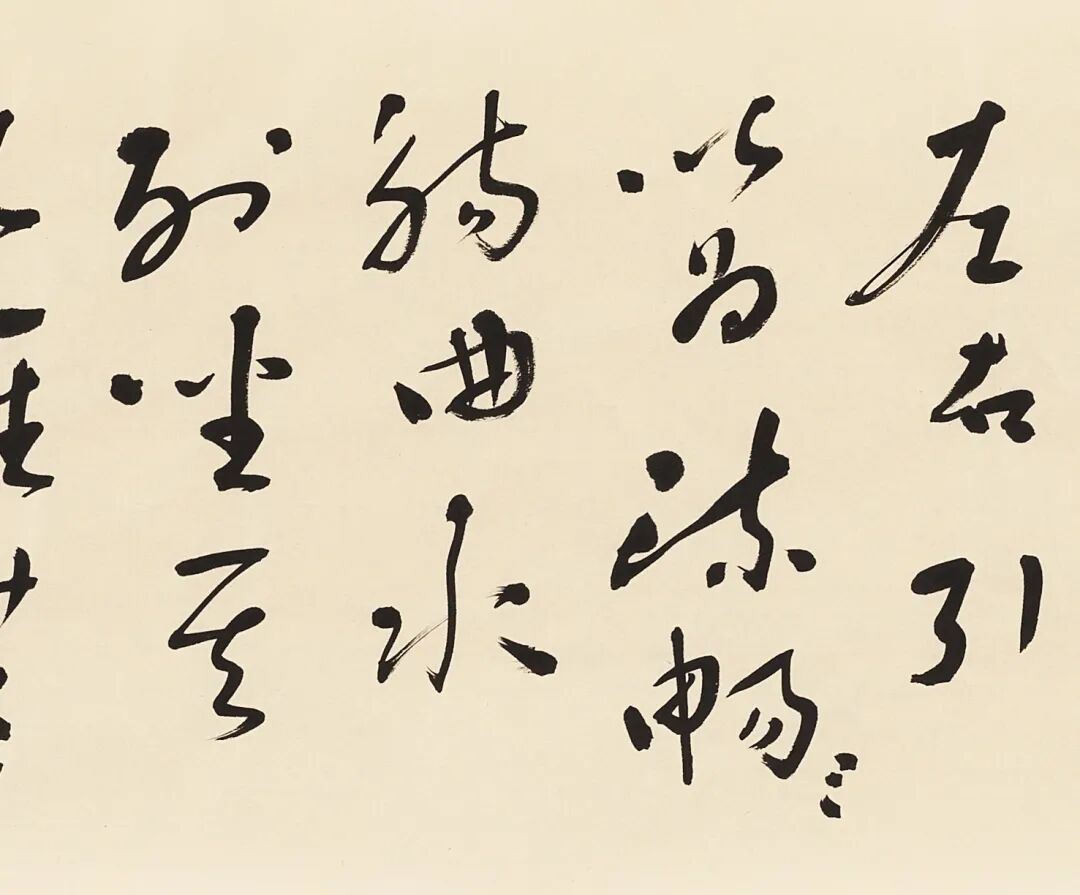 左右引
以為流暢
觴曲水
列坐其